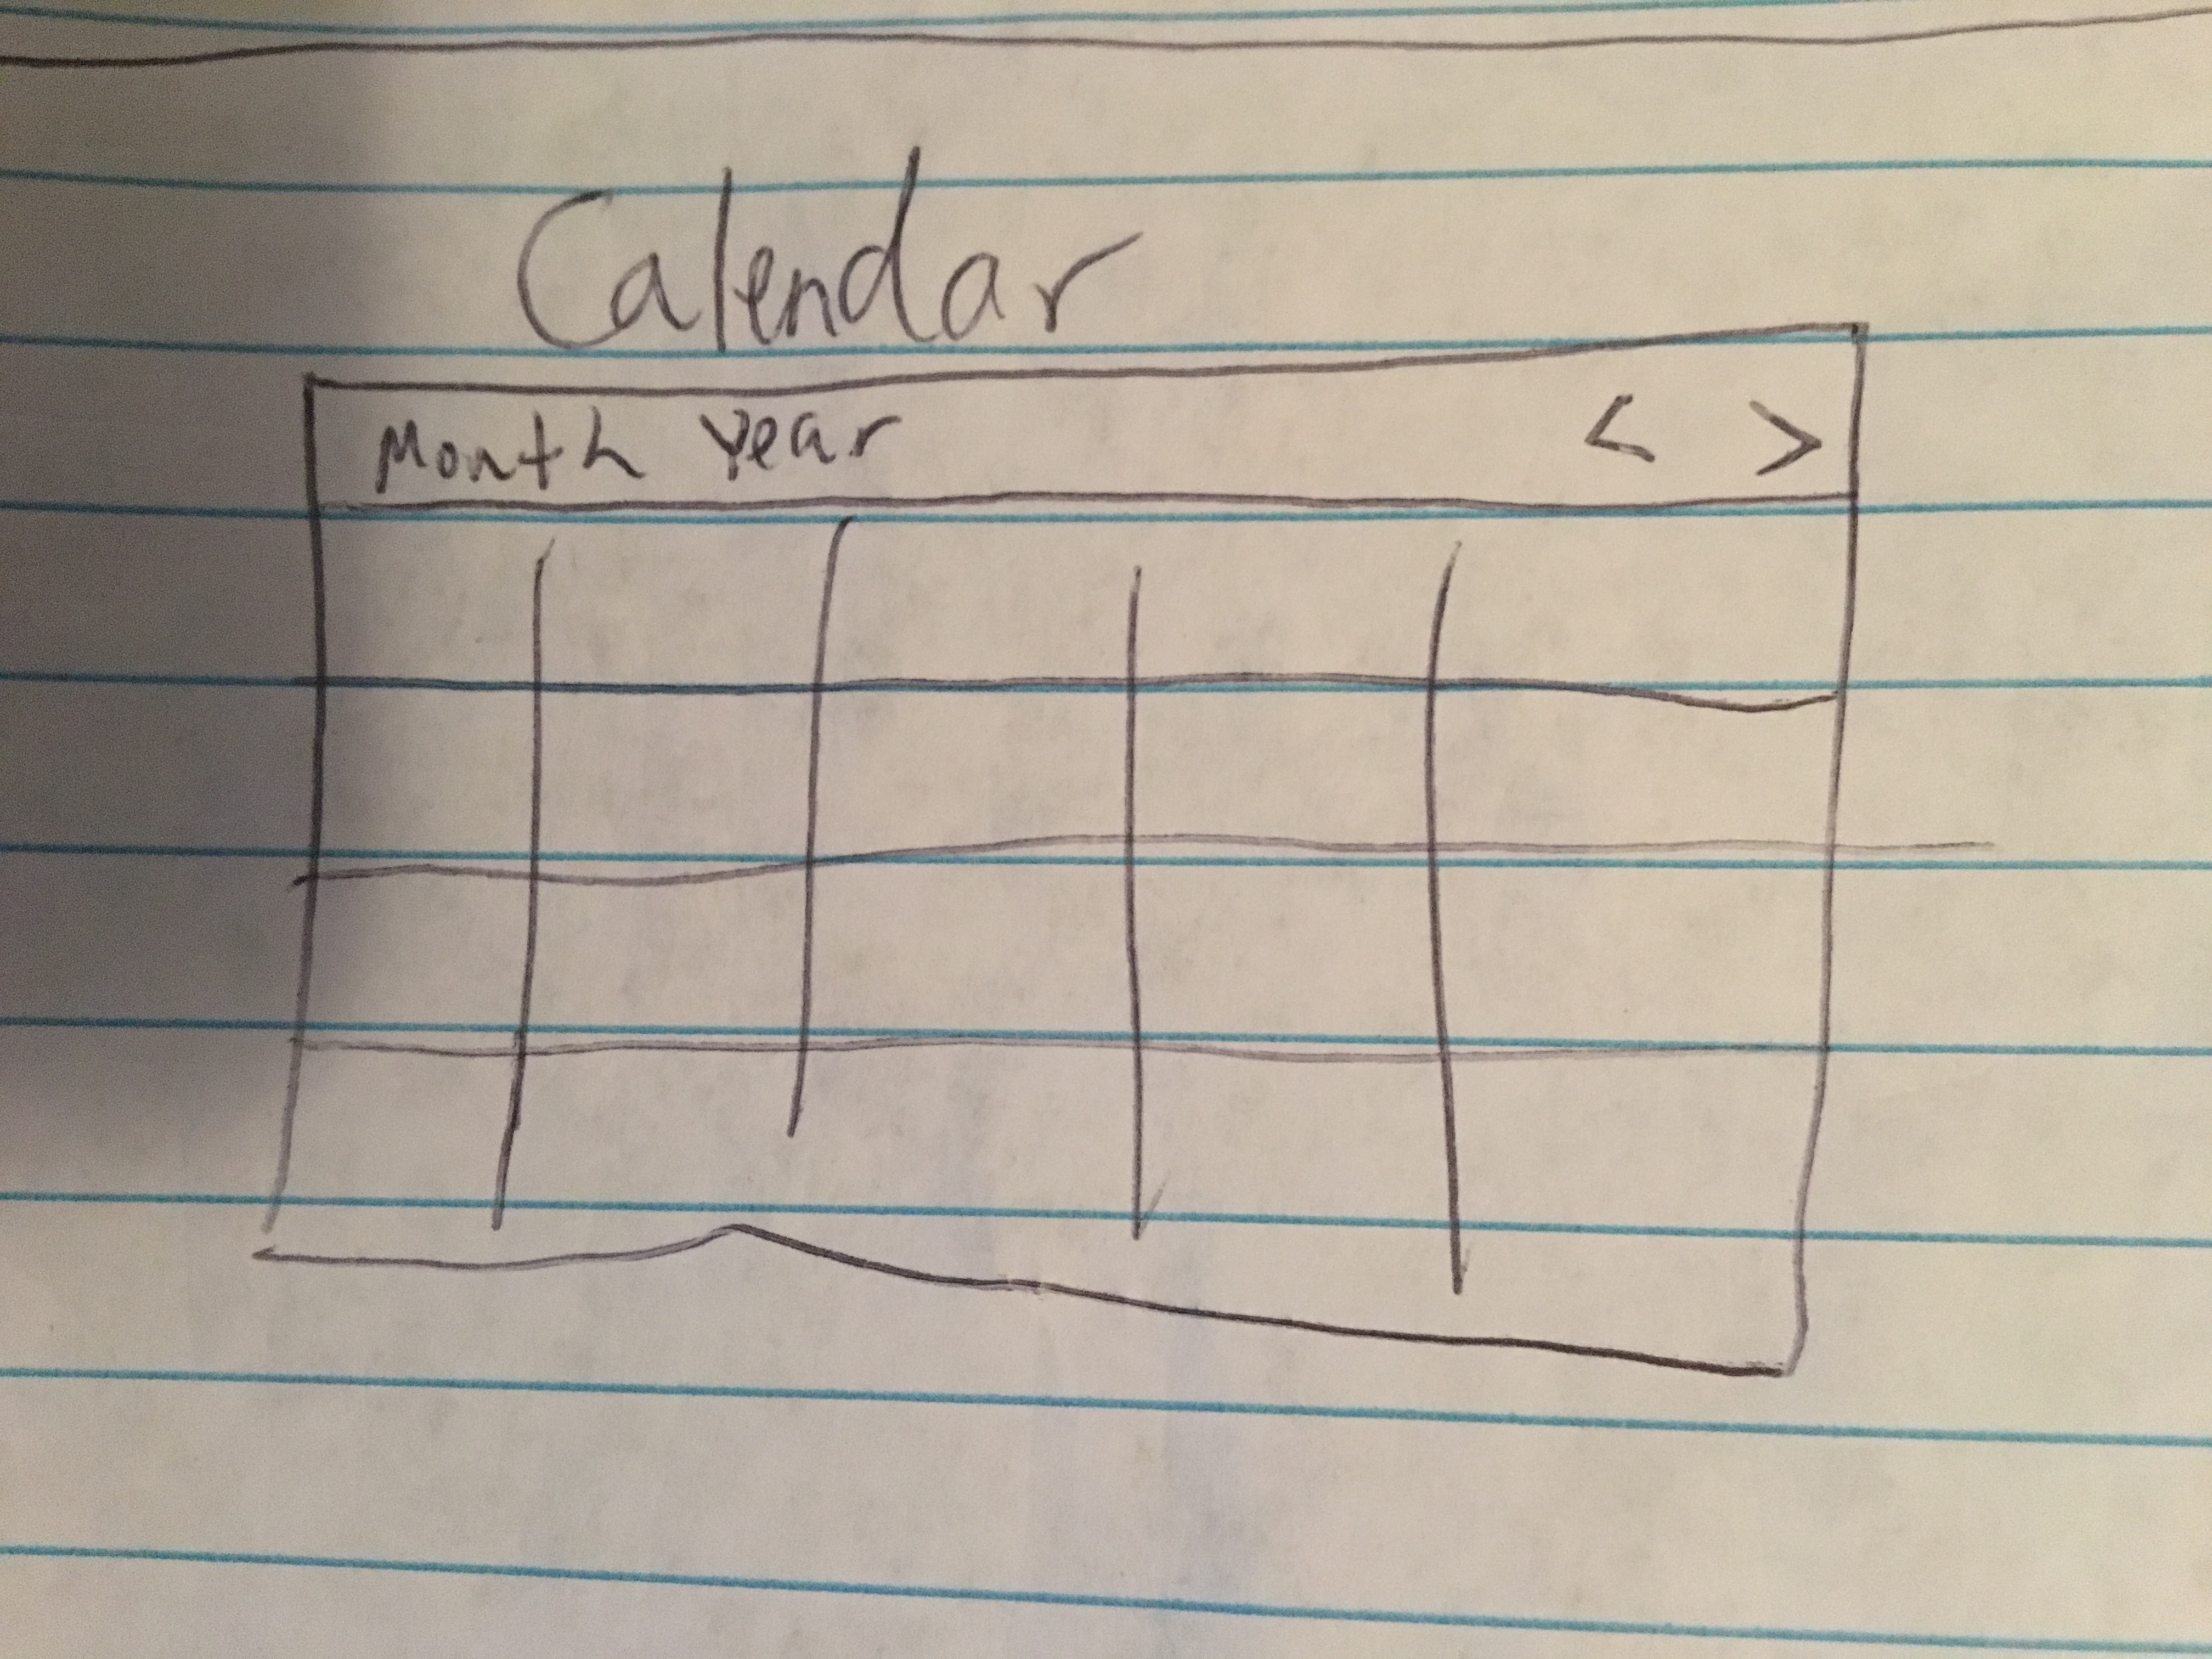 Calendar
Month Year < >